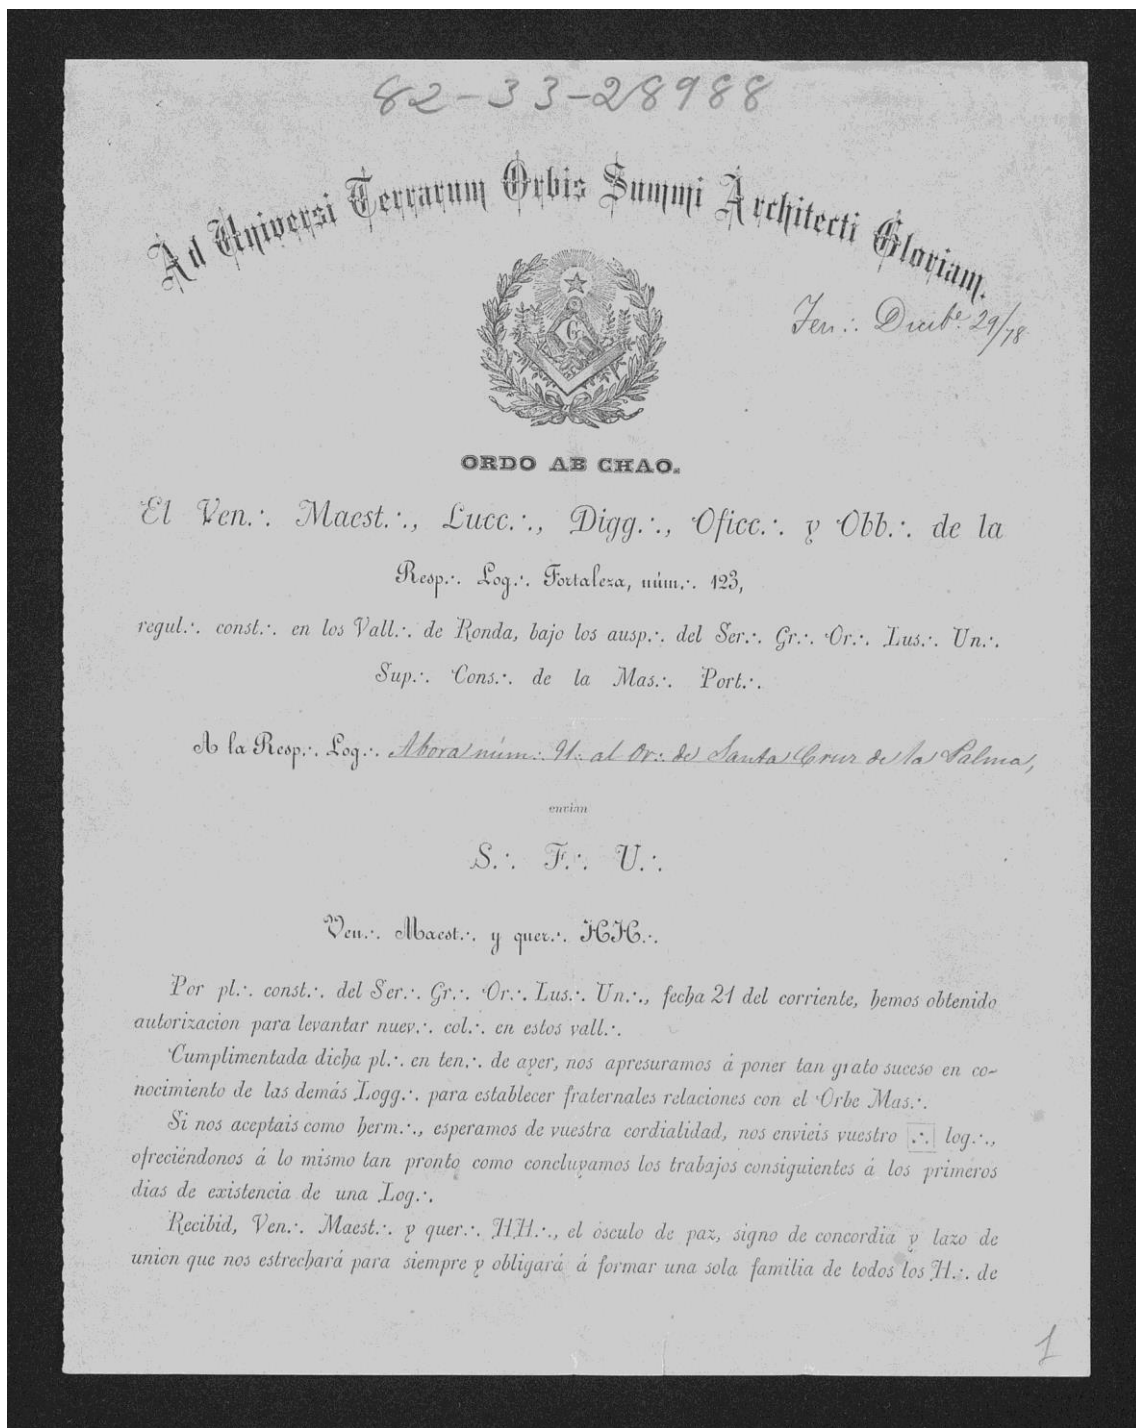 82-33-28988
Ad Universi Terrarum Orbis Summi Architecti Gloriam.
G
Ten.·. Dicibe. 29/78
ORDO AB CHAO.
El Ven.·. Maest.·., Lucc.·., Digg.·., Oficc.·. y Obb.·. de la
Resp.·. Log.·. Fortaleza, núm.·. 123,
regul.·. const.·. en los Vall.·. de Ronda, bajo los ausp.·. del Ser.·. Gr.·. Or.·. Lus.·. Un.·.
Sup.·. Cons.·. de la Mas.·. Port.·.
A la Resp.·. Log.·. Abora núm.·. 91.. al Or.·. de Santa Cruz de la Palma,
envian
S.·. F.·. U.·.
Ven.·. Maest.·. y quer.·. HH.·.
Por pl.·. const.·. del Ser.·. Gr.·. Or.·. Lus.·. Un.·., fecha 21 del corriente, hemos obtenido
autorizacion para levantar nuev.·. col.·. en estos vall.·.
Cumplimentada dicha pl.·. en ten.·. de ayer, nos apresuramos á poner tan grato suceso en co-
nocimiento de las demás Logg.·. para establecer fraternales relaciones con el Orbe Mas.·.
Si nos aceptais como herm.·., esperamos de vuestra cordialidad, nos envieis vuestro .·. log.·.,
ofreciéndonos á lo mismo tan pronto como concluyamos los trabajos consiguientes á los primeros
dias de existencia de una Log.·.
Recibid, Ven.·. Maest.·. y quer.·. HH.·., el ósculo de paz, signo de concordia y lazo de
union que nos estrechará para siempre y obligará á formar una sola familia de todos los H.·. de
1